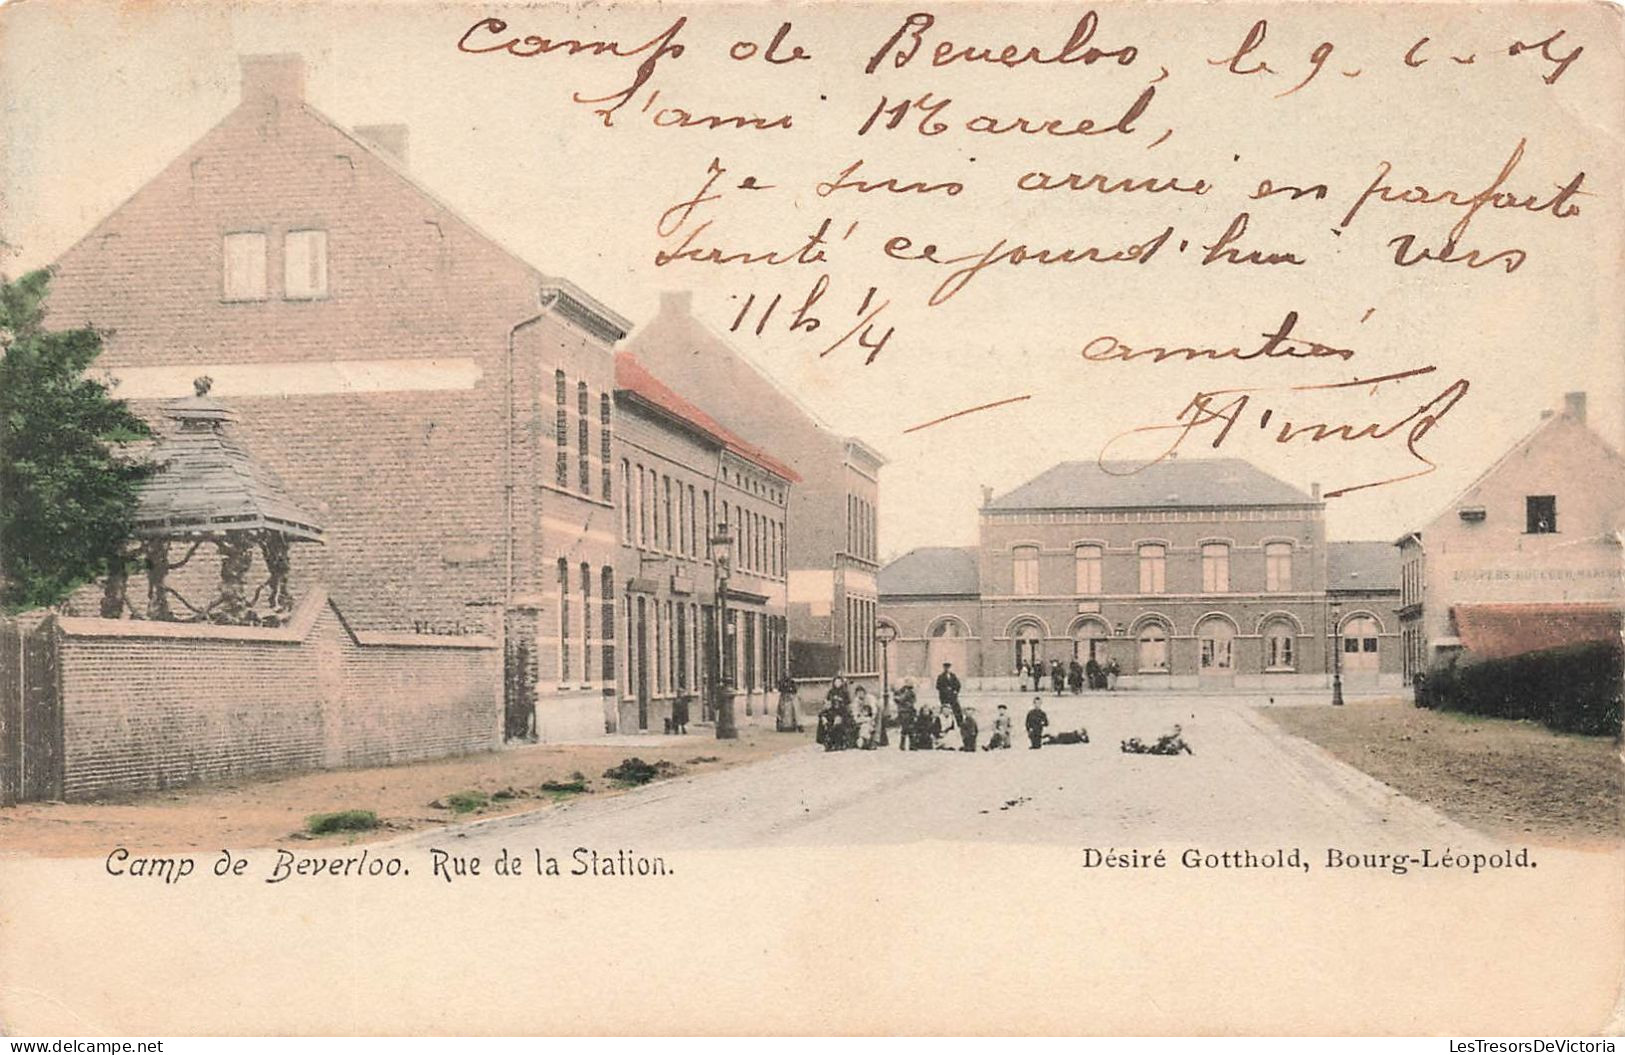 Camp de Beverloo, le 9 - 6 - 04
L'ami Marcel,
Je suis arrivé en parfaite
santé ce jourd'hui vers
11 h 1/4
amitiés
Camp de Beverloo. Rue de la Station.
Désiré Gotthold, Bourg-Léopold.
LesTresorsDeVictoria